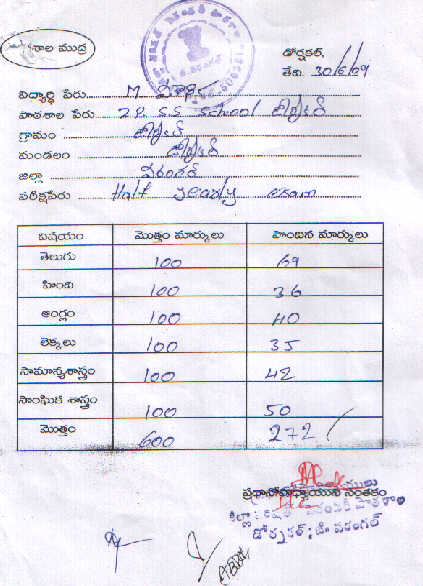 శాల ముద్ర
డోర్నకల్,
తేది. 30/6/09
విద్యార్థి పేరు M
పాఠశాల పేరు Z.P. S.S. School డోర్నకల్
గ్రామం డోర్నకల్
మండలం డోర్నకల్
జిల్లా వరంగల్
పరీక్షపేరు Half yearly exam
విషయం మొత్తం మార్కులు పొందిన మార్కులు
తెలుగు 100 69
హింది 100 36
ఆంగ్లం 100 40
లెక్కలు 100 35
సామాన్యశాస్త్రం 100 42
సాంఘిక శాస్త్రం 100 50
మొత్తం 600 272
ప్రధానోపాధ్యాయుని సంతకం
డోర్నకల్; జి వరంగల్